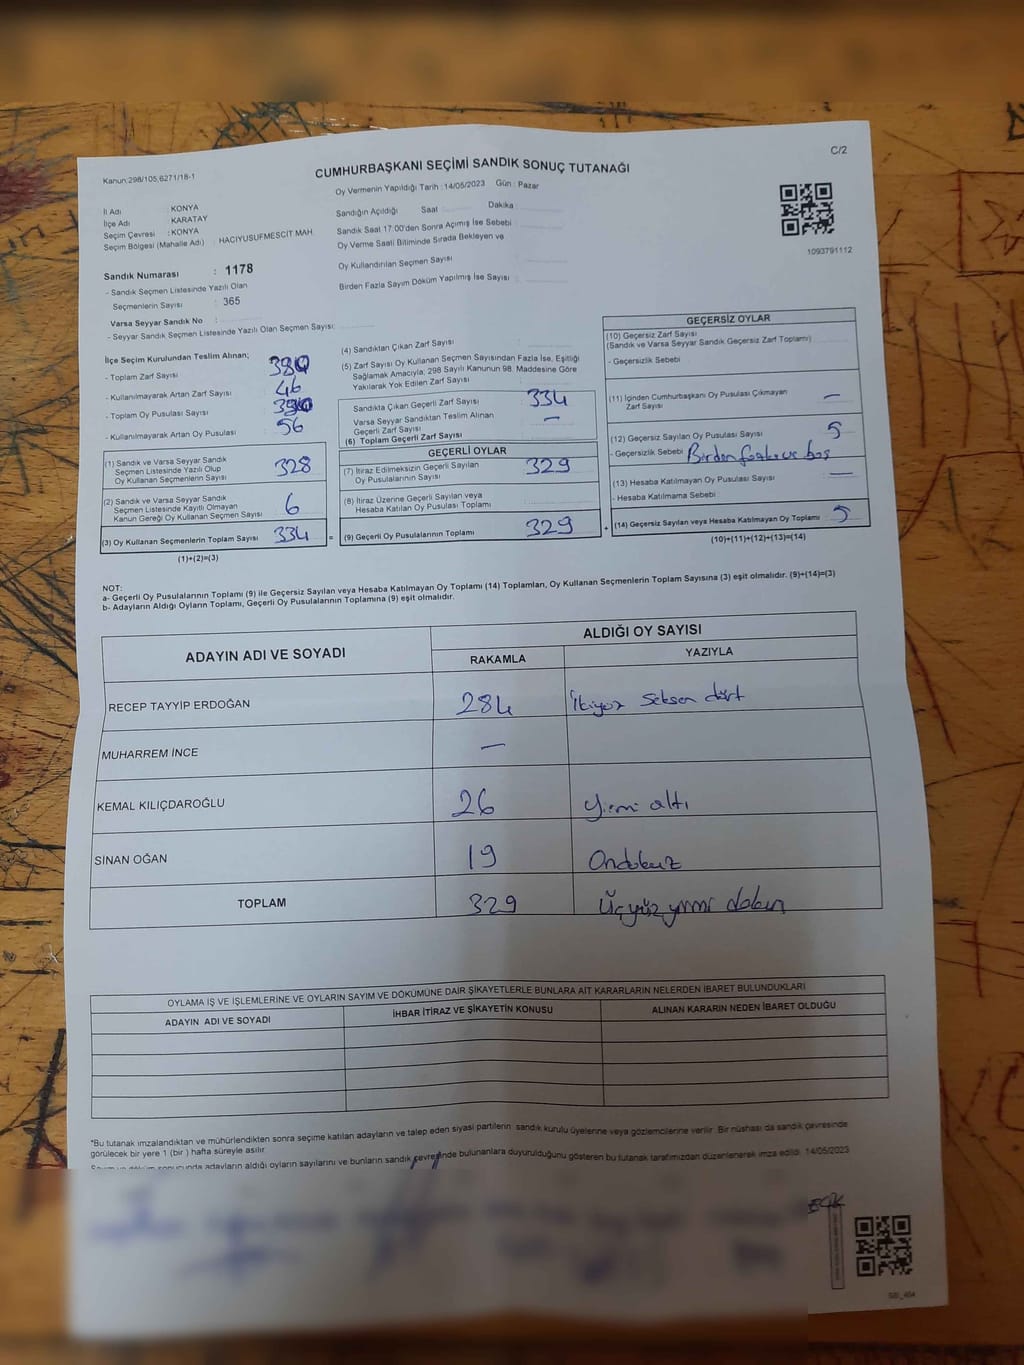 C/2
Kanun:298/105,6271/18-1
CUMHURBAŞKANI SEÇİMİ SANDIK SONUÇ TUTANAĞI
Oy Vermenin Yapıldığı Tarih : 14/05/2023 Gün : Pazar
İl Adı : KONYA
İlçe Adı : KARATAY
Seçim Çevresi : KONYA
Seçim Bölgesi (Mahalle Adı) : HACIYUSUFMESCİT MAH.
Sandığın Açıldığı Saat Dakika
Sandık Saat 17:00'den Sonra Açımış İse Sebebi
Oy Verme Saati Bitiminde Sırada Bekleyen ve
Oy Kullandırılan Seçmen Sayısı
Birden Fazla Sayım Döküm Yapılmış İse Sayısı :
1093791112
Sandık Numarası : 1178
- Sandık Seçmen Listesinde Yazılı Olan
Seçmenlerin Sayısı : 365
Varsa Seyyar Sandık No :
- Seyyar Sandık Seçmen Listesinde Yazılı Olan Seçmen Sayısı:
İlçe Seçim Kurulundan Teslim Alınan;
- Toplam Zarf Sayısı
- Kullanılmayarak Artan Zarf Sayısı : 46
- Toplam Oy Pusulası Sayısı
- Kullanılmayarak Artan Oy Pusulası : 56
(1) Sandık ve Varsa Seyyar Sandık
Seçmen Listesinde Yazılı Olup
Oy Kullanan Seçmenlerin Sayısı 328
(2) Sandık ve Varsa Seyyar Sandık
Seçmen Listesinde Kayıtlı Olmayan
Kanun Gereği Oy Kullanan Seçmen Sayısı 6
(3) Oy Kullanan Seçmenlerin Toplam Sayısı 334
(1)+(2)=(3)
(4) Sandıktan Çıkan Zarf Sayısı :
(5) Zarf Sayısı Oy Kullanan Seçmen Sayısından Fazla İse, Eşitliği
Sağlamak Amacıyla, 298 Sayılı Kanunun 98. Maddesine Göre
Yakılarak Yok Edilen Zarf Sayısı
Sandıkta Çıkan Geçerli Zarf Sayısı : 334
Varsa Seyyar Sandıktan Teslim Alınan
Geçerli Zarf Sayısı : —
(6) Toplam Geçerli Zarf Sayısı
GEÇERLİ OYLAR
(7) İtiraz Edilmeksizin Geçerli Sayılan
Oy Pusulalarının Sayısı : 329
(8) İtiraz Üzerine Geçerli Sayılan veya
Hesaba Katılan Oy Pusulası Toplamı
(9) Geçerli Oy Pusulalarının Toplamı 329
=
+
GEÇERSİZ OYLAR
(10) Geçersiz Zarf Sayısı
(Sandık ve Varsa Seyyar Sandık Geçersiz Zarf Toplamı)
- Geçersizlik Sebebi :
(11) İçinden Cumhurbaşkanı Oy Pusulası Çıkmayan
Zarf Sayısı —
(12) Geçersiz Sayılan Oy Pusulası Sayısı : 5
- Geçersizlik Sebebi : Birden fazla ve boş
(13) Hesaba Katılmayan Oy Pusulası Sayısı : —
- Hesaba Katılmama Sebebi :
(14) Geçersiz Sayılan veya Hesaba Katılmayan Oy Toplamı 5
(10)+(11)+(12)+(13)=(14)
NOT:
a- Geçerli Oy Pusulalarının Toplamı (9) ile Geçersiz Sayılan veya Hesaba Katılmayan Oy Toplamı (14) Toplamları, Oy Kullanan Seçmenlerin Toplam Sayısına (3) eşit olmalıdır. (9)+(14)=(3)
b- Adayların Aldığı Oyların Toplamı, Geçerli Oy Pusulalarının Toplamına (9) eşit olmalıdır.
ADAYIN ADI VE SOYADI ALDIĞI OY SAYISI
RAKAMLA YAZIYLA
RECEP TAYYİP ERDOĞAN 284 İkiyüz Seksen dört
MUHARREM İNCE —
KEMAL KILIÇDAROĞLU 26 Yirmi altı
SİNAN OĞAN 19 Ondokuz
TOPLAM 329 Üçyüz yirmi dokuz
OYLAMA İŞ VE İŞLEMLERİNE VE OYLARIN SAYIM VE DÖKÜMÜNE DAİR ŞİKAYETLERLE BUNLARA AİT KARARLARIN NELERDEN İBARET BULUNDUKLARI
ADAYIN ADI VE SOYADI İHBAR İTİRAZ VE ŞİKAYETİN KONUSU ALINAN KARARIN NEDEN İBARET OLDUĞU
*Bu tutanak imzalandıktan ve mühürlendikten sonra seçime katılan adayların ve talep eden siyasi partilerin sandık kurulu üyelerine veya gözlemcilerine verilir. Bir nüshası da sandık çevresinde
görülecek bir yere 1 (bir ) hafta süreyle asılır.
Sayım ve döküm sonucunda adayların aldığı oyların sayılarını ve bunların sandık çevresinde bulunanlara duyurulduğunu gösteren bu tutanak tarafımızdan düzenlenerek imza edildi. 14/05/2023